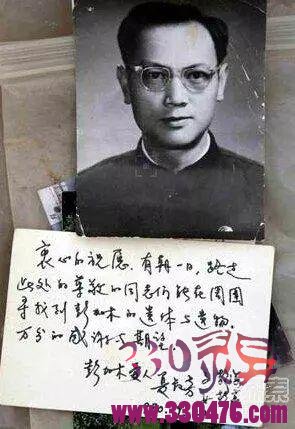 衷心的祝愿.有朝一日,路过
此处的尊敬的同志们能在周围
寻找到彭加木的遗体与遗物.
万分的感谢与期望
彭加木夫人
夏叔芳
330
www.330476.com